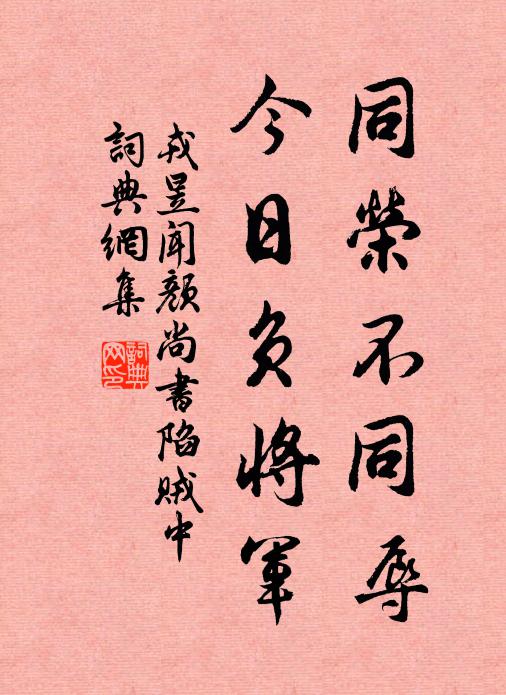 同榮不同辱
今日負將軍
戎昱聞顏尚書陷賊中
詞典網集
詞典
网印